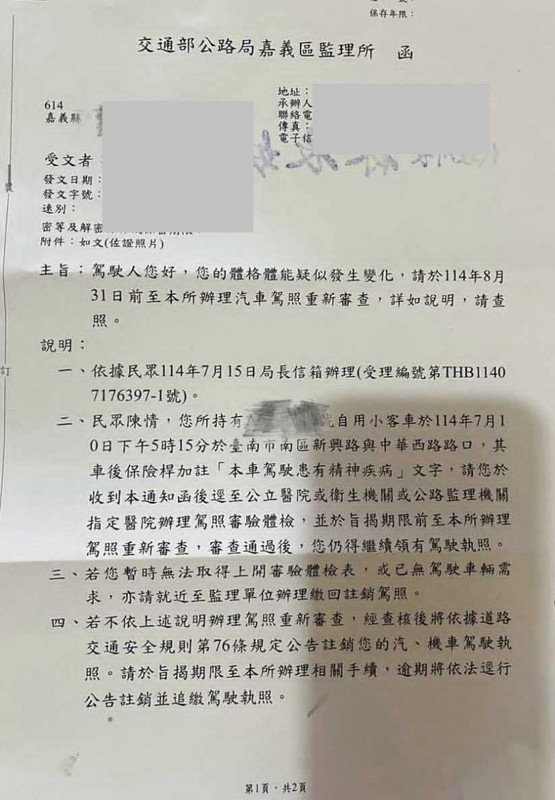 保存年限：
交通部公路局嘉義區監理所　函
地址：
承辦人
聯絡電
傳真：
電子信
614
嘉義縣
受文者：
發文日期：
發文字號：
速別：
密等及解密
附件：如文(佐證照片)
主旨：駕駛人您好，您的體格體能疑似發生變化，請於114年8月
31日前至本所辦理汽車駕照重新審查，詳如說明，請查
照。
說明：
一、依據民眾114年7月15日局長信箱辦理(受理編號第THB1140
7176397-1號)。
二、民眾陳情，您所持有 自用小客車於114年7月1
0日下午5時15分於臺南市南區新興路與中華西路路口，其
車後保險桿加註「本車駕駛患有精神疾病」文字，請您於
收到本通知函後逕至公立醫院或衛生機關或公路監理機關
指定醫院辦理駕照審驗體檢，並於旨揭期限前至本所辦理
駕照重新審查，審查通過後，您仍得繼續領有駕駛執照。
三、若您暫時無法取得上開審驗體檢表，或已無駕駛車輛需
求，亦請就近至監理單位辦理繳回註銷駕照。
四、若不依上述說明辦理駕照重新審查，經查核後將依據道路
交通安全規則第76條規定公告註銷您的汽、機車駕駛執
照。請於旨揭期限至本所辦理相關手續，逾期將依法逕行
公告註銷並追繳駕駛執照。
訂
第1頁，共2頁